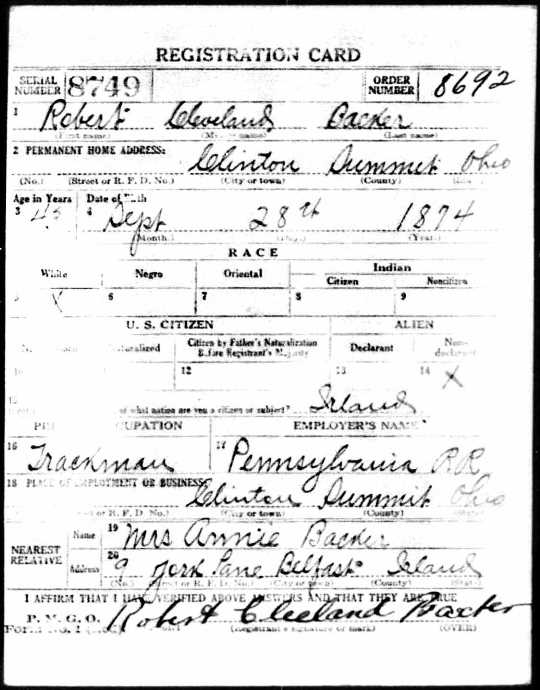 REGISTRATION CARD
SERIAL NUMBER 8749 ORDER NUMBER 8692
1 Robert Cleveland Backer
(First name) (Middle name) (Last name)
2 PERMANENT HOME ADDRESS:
Clinton Summit Ohio
(No.) (Street or R. F. D. No.) (City or town) (County)
Age in Years Date of Birth
3 45 4 Sept 28th 1874
(Month.) (Day.) (Year.)
RACE
White Negro Oriental Indian
Citizen Noncitizen
5 X 6 7 8 9
U. S. CITIZEN ALIEN
Citizen by Father's Naturalization Before Registrant's Majority Declarant
12 13 14 X
of what nation are you a citizen or subject? Irland
EMPLOYER'S NAME
16 Trackman 17 Pennsylvania RR
18 PLACE OF EMPLOYMENT OR BUSINESS:
Clinton Summit Ohio
or R. F. D. No.) (City or town) (County) (State)
NEAREST RELATIVE
Name 19 Mrs Annie Backer
Address 20 9 York Lane Belfast Irland
(No.) (Street or R. F. D. No.) (City or town) (County) (State)
I AFFIRM THAT I HAVE VERIFIED ABOVE ANSWERS AND THAT THEY ARE TRUE
P. M. G. O.
Form No. 1 Robert Cleeland Baxter
(Registrant's signature or mark) (OVER)